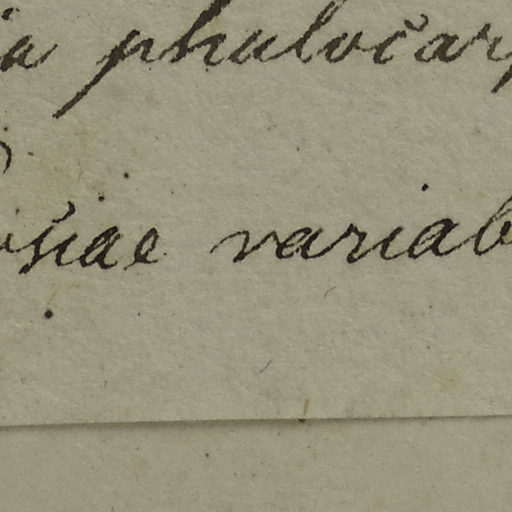 ia phuločar
ošiae variab